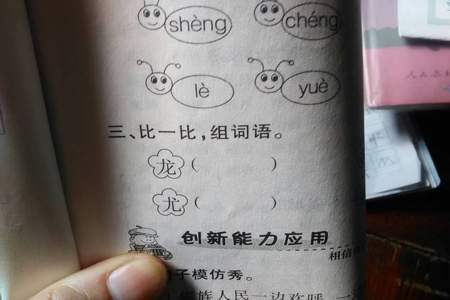 shèng chéng
lè yuè
三、比一比,组词语。
龙( )
尤( )
创新能力应用
子模仿秀。
族人民一边欢呼